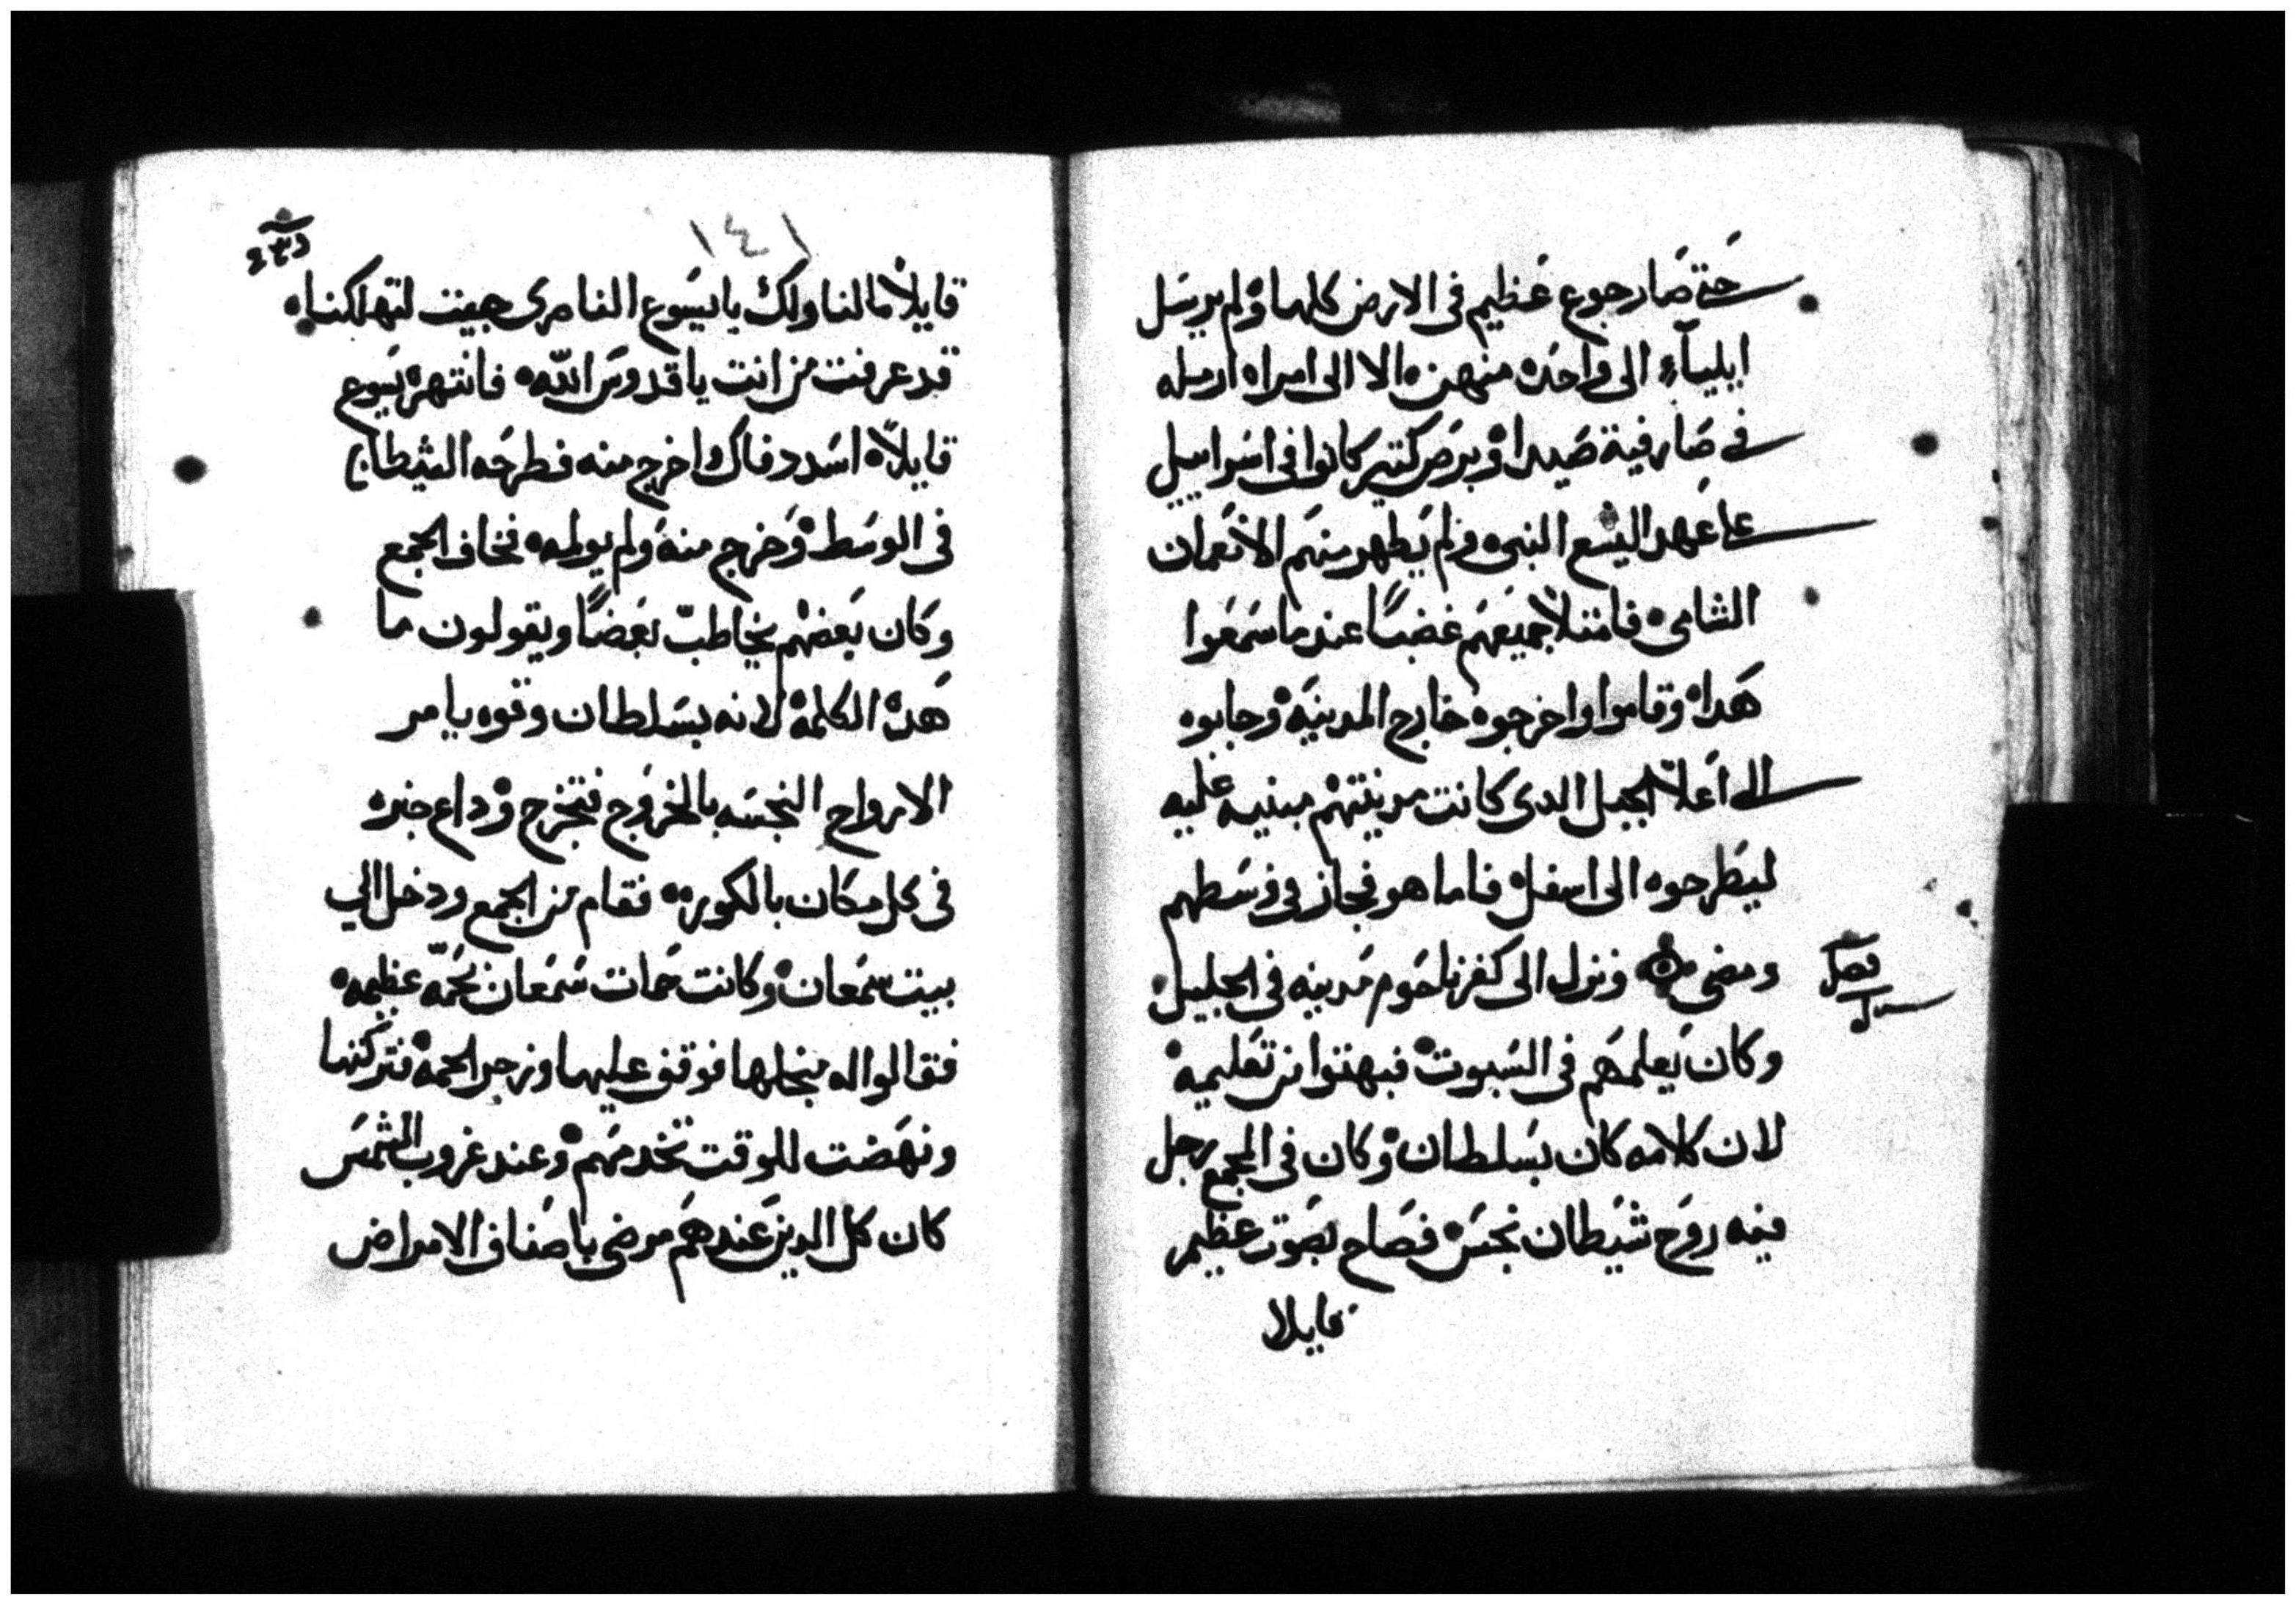 حتى صار جوع عظيم فى الارض كلها ولم يرسل
ايلياء الى واحده منهن الا الى امراه ارمله
فى صارفية صيدا وبرص كتير كانوا فى اسراييل
على عهد اليشع النبى ولم يطهر منهم الا نعمان
الشامى فامتلا جميعهم غضبًا عند ما سمعوا
هدا وقاموا واخرجوه خارج المدينه وجابوه
الى اعلا الجبل الدى كانت مدينتهم مبنيه عليه
ليطرحوه الى اسفل فاما هو فجاز فى وسطهم
ومضى ونزل الى كفرناحوم مدينه فى الجليل
فصل
وكان يعلمهم فى السبوت فبهتوا من تعليمه
لان كلامه كان بسلطان وكان فى المجمع رجل
فيه روح شيطان نجس فصاح بصوت عظيم
قايلا
١٤١
قايلا ما لنا ولك يا يسوع الناصرى جيت لتهلكنا
قد عرفت من انت يا قدوس الله فانتهره يسوع
قايلا اسدد فاك واخرج منه فطرحه الشيطان
فى الوسط وخرج منه ولم يولمه فخاف الجمع
وكان بعضهم يخاطب بعضًا ويقولون ما
هده الكلمه لانه بسلطان وقوه يامر
الارواح النجسه بالخروج فتخرج وداع خبره
فى كل مكان بالكوره فقام من الجمع ودخل الي
بيت سمعان وكانت حمات سمعان بحمه عظيمه
فقالوا له من اجلها فوقف عليها وزجر الحمه فتركتها
ونهضت للوقت تخدمهم وعند غروب الشمس
كان كل الدين عندهم مرضى باصناف الامراض